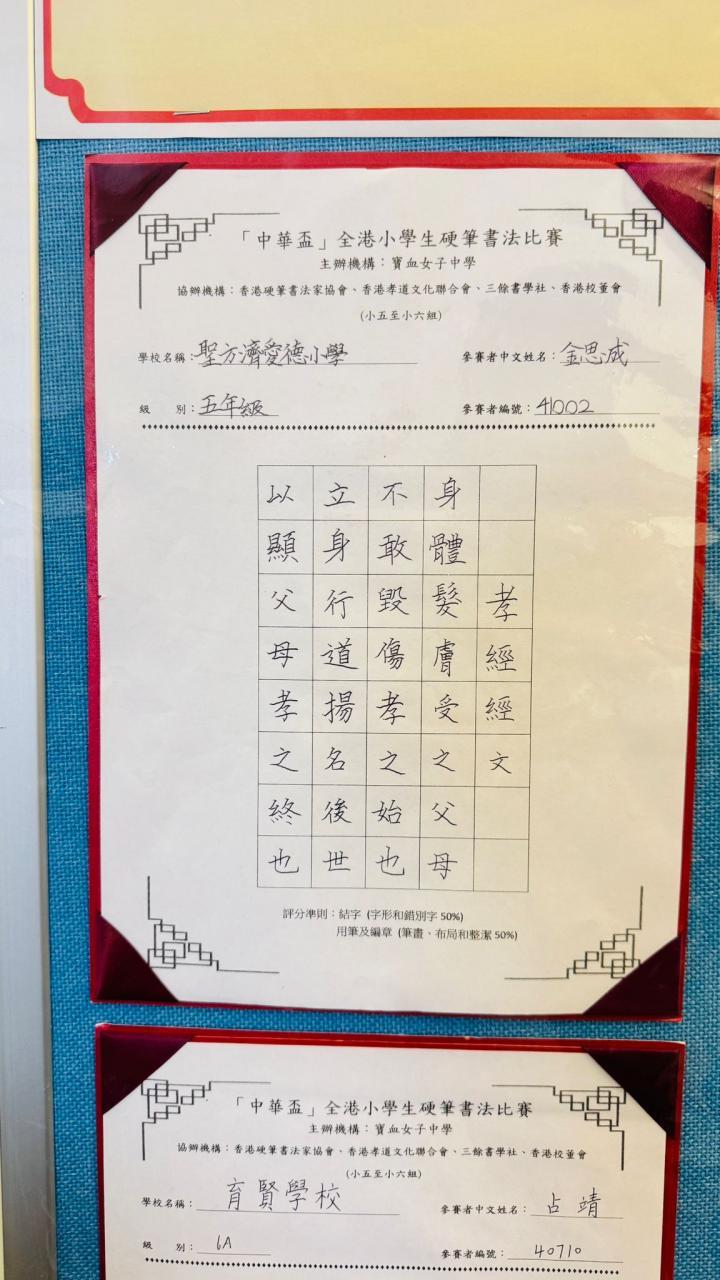 「中華盃」全港小學生硬筆書法比賽
主辦機構：寶血女子中學
協辦機構：香港硬筆書法家協會、香港孝道文化聯合會、三餘書學社、香港校董會
(小五至小六組)
學校名稱：聖方濟愛德小學
參賽者中文姓名：金思成
級　別：五年級
參賽者編號：41002
孝經經文
身體髮膚受之父母
不敢毀傷孝之始也
立身行道揚名後世
以顯父母孝之終也
評分準則：結字 (字形和錯別字 50%)
用筆及編章 (筆畫、布局和整潔 50%)
「中華盃」全港小學生硬筆書法比賽
主辦機構：寶血女子中學
協辦機構：香港硬筆書法家協會、香港孝道文化聯合會、三餘書學社、香港校董會
(小五至小六組)
學校名稱：育賢學校
參賽者中文姓名：占靖
級　別：6A
參賽者編號：40710